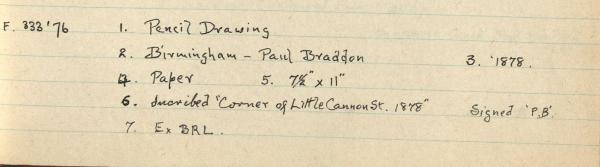 F. 333'76 1. Pencil Drawing
2. Birmingham - Paul Braddon 3. '1878.
4. Paper 5. 7½" x 11"
6. Inscribed "Corner of Little Cannon St. 1878" Signed 'P.B'.
7. Ex BRL.